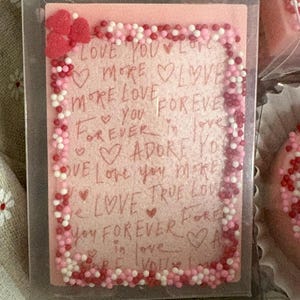 LOVE YOU LOVE
more LOVE
more LOVE FOREVER
YOU
FOREVER in love
ADORE YO
VE Love you MORE
LOVE TRUE LOV
YOU FOREVER FORE
in love A